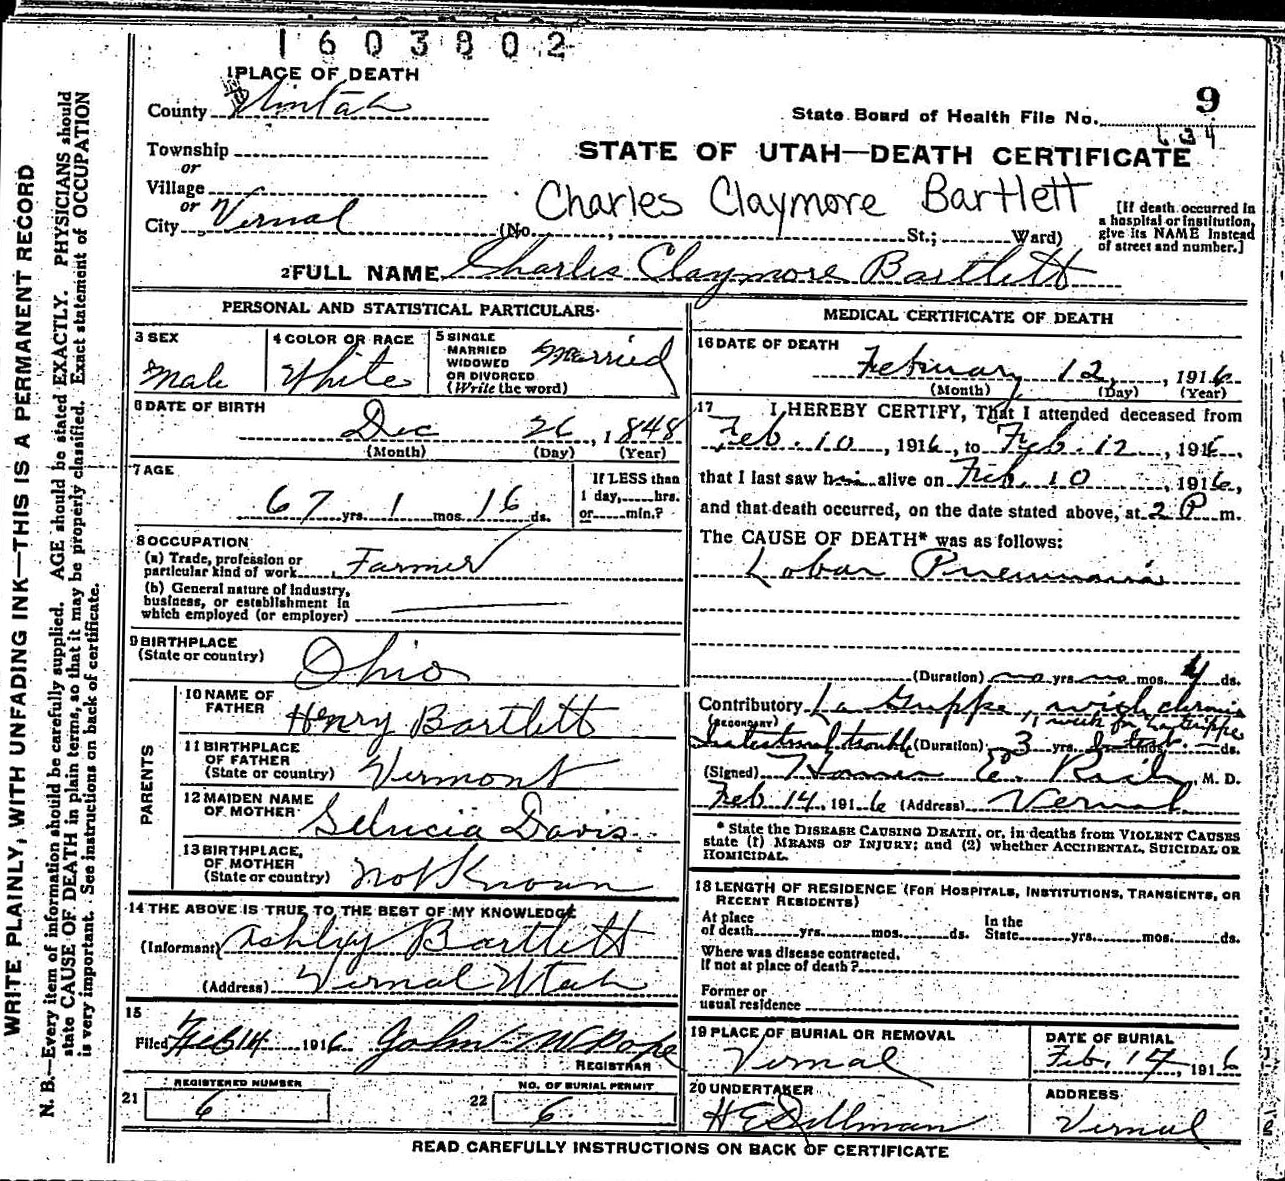 1603802
1 PLACE OF DEATH
County Uintah
9
State Board of Health File No.
Township
or
Village
or
City Vernal
STATE OF UTAH—DEATH CERTIFICATE
Charles Claymore Bartlett
(No. , St.; Ward)
[If death occurred in
a hospital or institution,
give its NAME instead
of street and number.]
2 FULL NAME Charles Claymore Bartlett
PERSONAL AND STATISTICAL PARTICULARS
3 SEX
Male
4 COLOR OR RACE
White
5 SINGLE
MARRIED
WIDOWED
OR DIVORCED
(Write the word)
Married
6 DATE OF BIRTH
Dec 26, 1848
(Month) (Day) (Year)
7 AGE
67 yrs. 1 mos. 16 ds.
If LESS than
1 day, hrs.
or min.?
8 OCCUPATION
(a) Trade, profession or
particular kind of work Farmer
(b) General nature of industry,
business, or establishment in
which employed (or employer)
9 BIRTHPLACE
(State or country)
Ohio
PARENTS
10 NAME OF
FATHER
Henry Bartlett
11 BIRTHPLACE
OF FATHER
(State or country)
Vermont
12 MAIDEN NAME
OF MOTHER
Selucia Davis
13 BIRTHPLACE
OF MOTHER
(State or country)
Not Known
14 THE ABOVE IS TRUE TO THE BEST OF MY KNOWLEDGE
(Informant) Ashley Bartlett
(Address) Vernal Utah
15
Filed Feb 14 1916 John W Pope
REGISTRAR
REGISTERED NUMBER
21 6
NO. OF BURIAL PERMIT
22 6
MEDICAL CERTIFICATE OF DEATH
16 DATE OF DEATH
February 12, 1916
(Month) (Day) (Year)
17 I HEREBY CERTIFY, That I attended deceased from
Feb. 10, 1916, to Feb. 12, 1916,
that I last saw him alive on Feb. 10, 1916,
and that death occurred, on the date stated above, at 2 P m.
The CAUSE OF DEATH* was as follows:
Lobar Pneumonia
(Duration) no yrs. no mos. 4 ds.
Contributory La Grippe, with chronic
(SECONDARY) 1 week for La Grippe
Intestinal trouble (Duration) 3 yrs. mos. ds.
(Signed) Homer E. Rich, M. D.
Feb 14, 1916 (Address) Vernal
* State the DISEASE CAUSING DEATH, or, in deaths from VIOLENT CAUSES
state (1) MEANS OF INJURY; and (2) whether ACCIDENTAL, SUICIDAL OR
HOMICIDAL.
18 LENGTH OF RESIDENCE (FOR HOSPITALS, INSTITUTIONS, TRANSIENTS, OR
RECENT RESIDENTS)
At place
of death yrs. mos. ds.
In the
State yrs. mos. ds.
Where was disease contracted,
If not at place of death?
Former or
usual residence
19 PLACE OF BURIAL OR REMOVAL
Vernal
DATE OF BURIAL
Feb. 14, 1916
20 UNDERTAKER
H E Dillman
ADDRESS
Vernal
READ CAREFULLY INSTRUCTIONS ON BACK OF CERTIFICATE
WRITE PLAINLY, WITH UNFADING INK—THIS IS A PERMANENT RECORD
N. B.—Every item of information should be carefully supplied. AGE should be stated EXACTLY. PHYSICIANS should
state CAUSE OF DEATH in plain terms, so that it may be properly classified. Exact statement of OCCUPATION
is very important. See instructions on back of certificate.